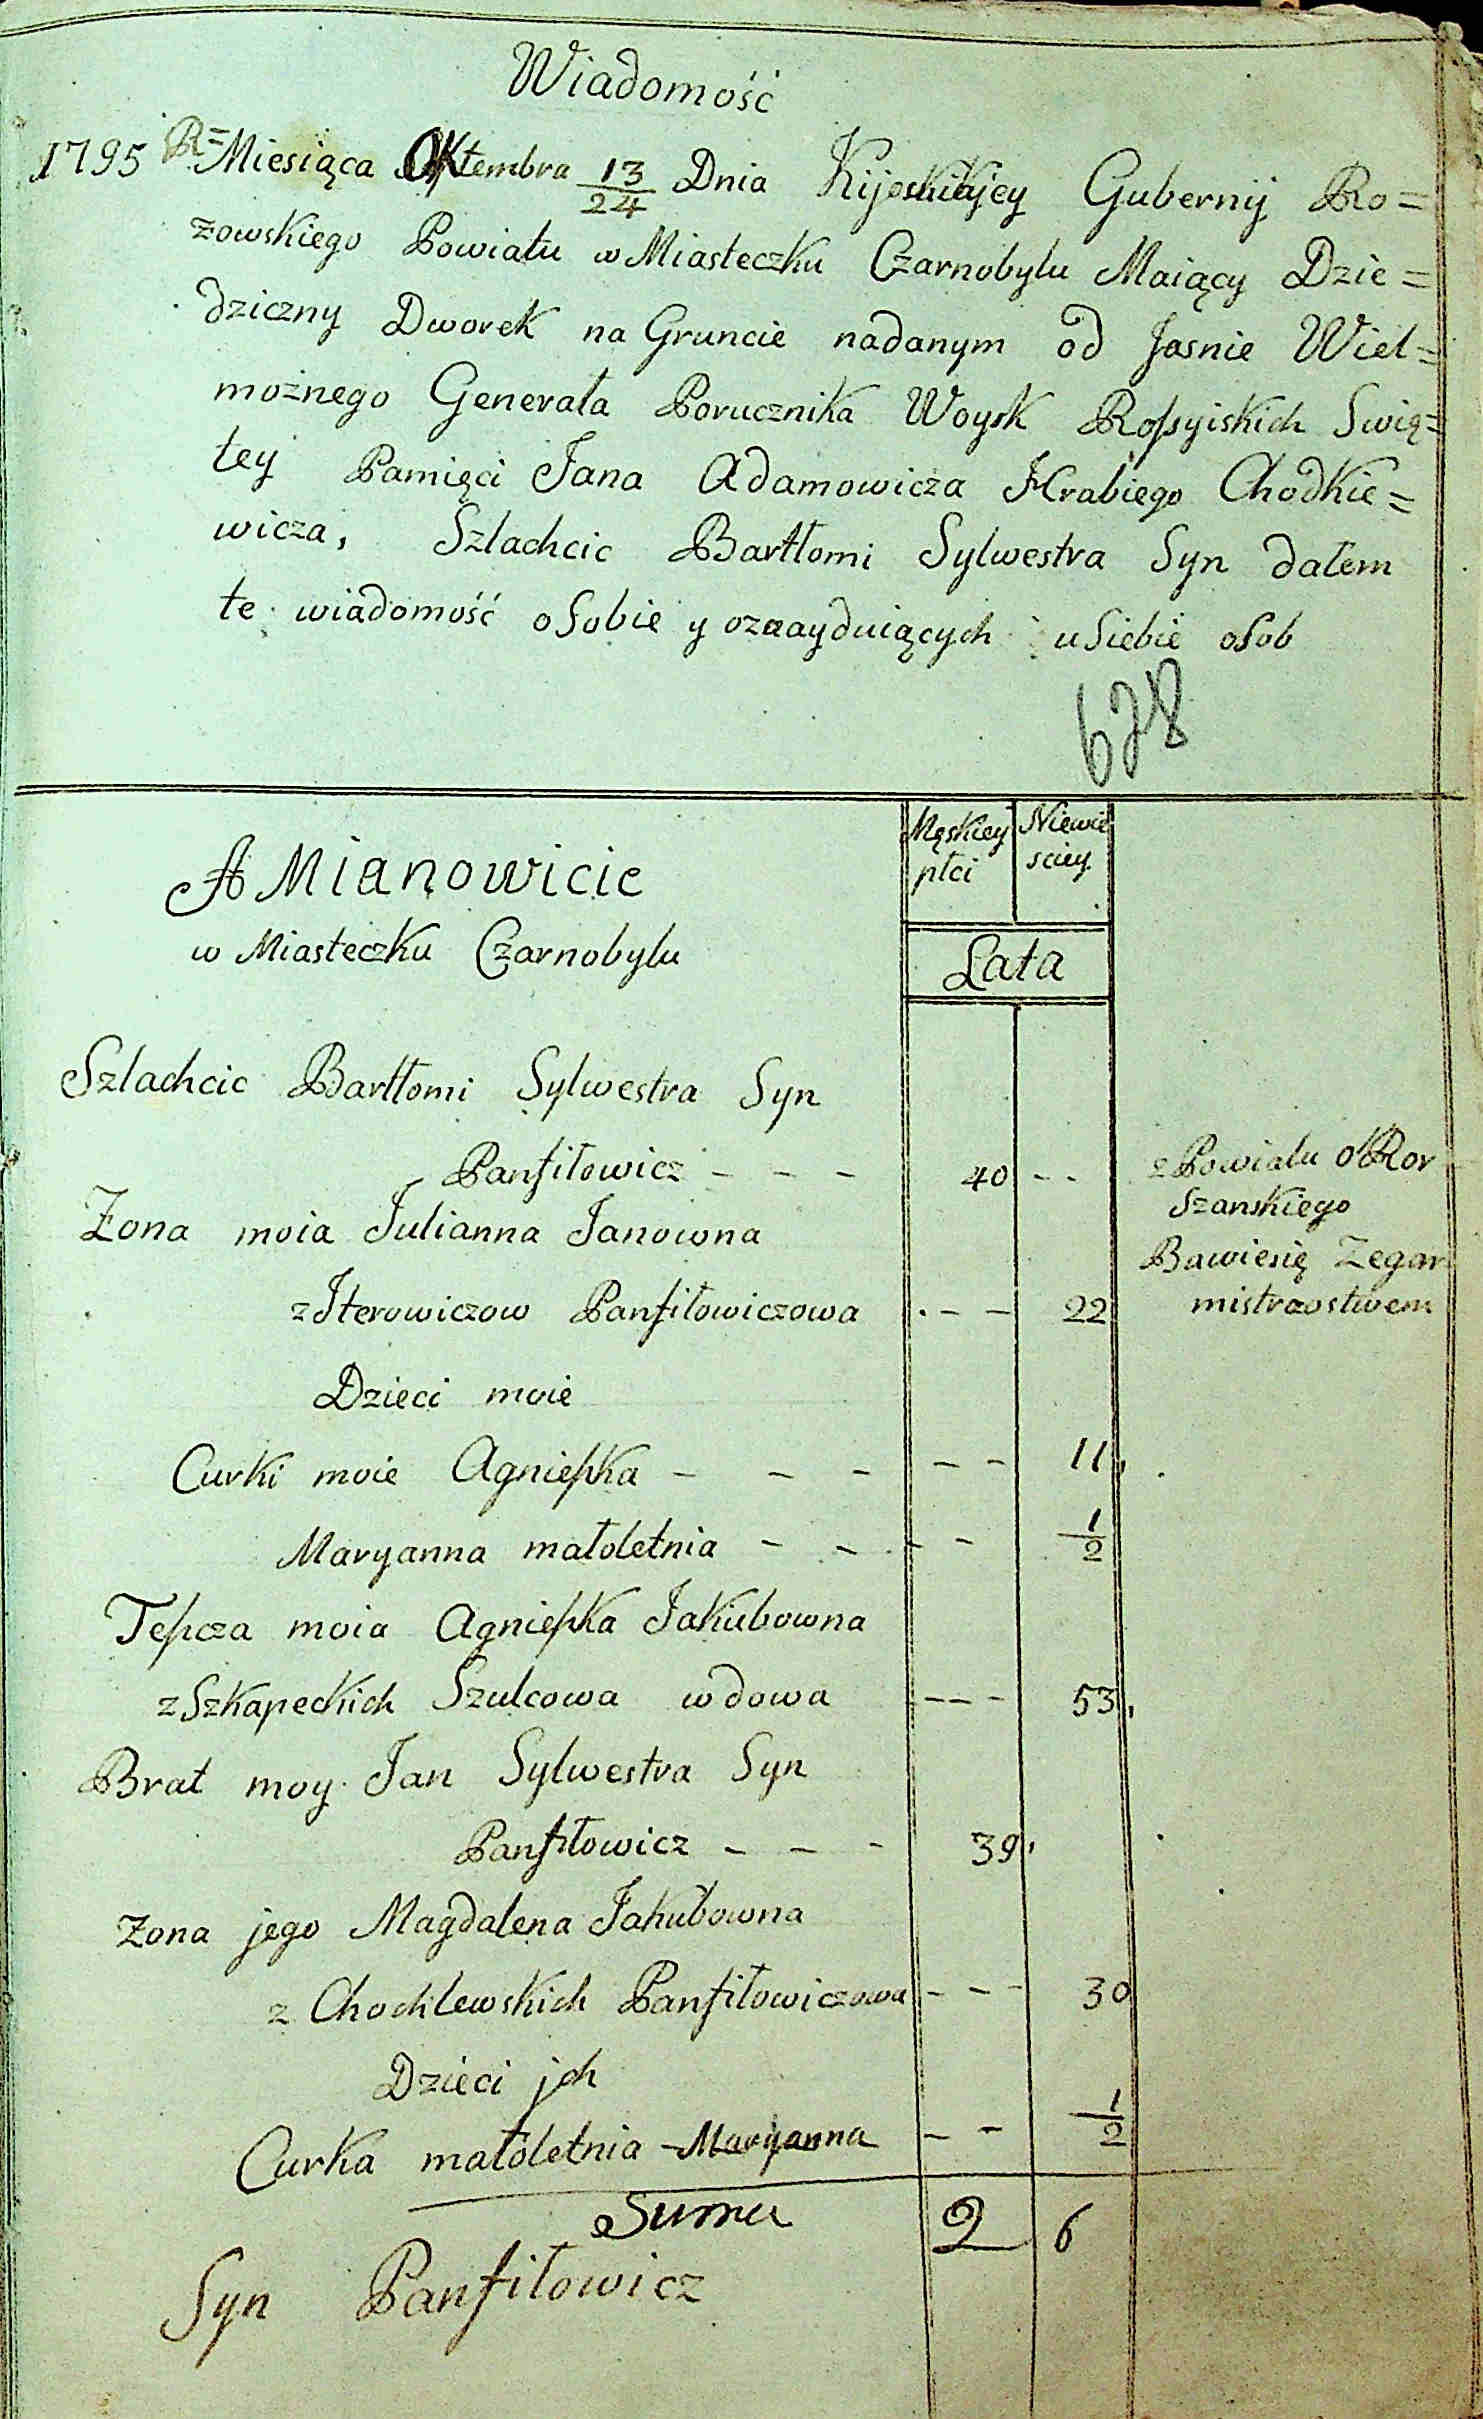 Wiadomość
1795 R= Miesiąca Oktembra 13/24 Dnia Kijoskiey Gubernij Ro=
zowskiego Powiatu w Miasteczku Czarnobylu Maiący Dzie=
dziczny Dworek na Gruncie nadanym od Jasnie Wiel=
możnego Generała Porucznika Woysk Roſsyiskich Swię=
tey Pamięci Jana Adamowicza Hrabiego Chodkie=
wicza, Szlachcic Bartłomi Sylwestra Syn dałem
te wiadomość o Sobie y uSiebie oSob
628
A Mianowicie
w Miasteczku Czarnobylu
Męskiey płci
Niewie sciey
Lata
Szlachcic Bartłomi Sylwestra Syn
Panfiłowicz - - - 40 - -
z Powiatu oRor
Szanskiego
Bawiesię Zegar
mistrzostwem
Żona moia Julianna Janowna
z Iterowiczow Panfiłowiczowa - - - 22
Dzieci moie
Curki moie Agnieſzka - - - - - 11,
Maryanna małoletnia - - - - 1/2
Teſcza moia Agnieſzka Jakubowna
z Szkapeckich Szulcowa wdowa - - - 53,
Brat moy Jan Sylwestra Syn
Panfiłowicz - - - 39,
Zona jego Magdalena Jakubowna
z Chodilewskich Panfiłowiczowa - - - 30
Dzieci jch
Curka małoletnia - Maryanna - - 1/2
Suma 2 6
Syn Panfiłowicz